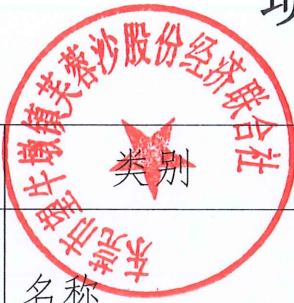 东莞市望牛墩镇芙蓉沙股份经济联合社
类别
名称